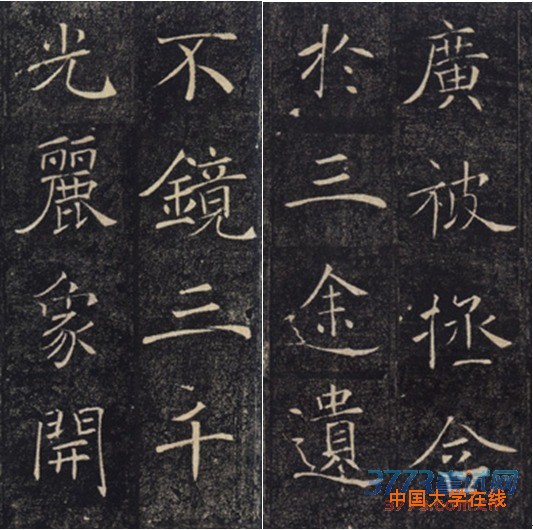 廣被拯含
於三途遺
不鏡三千
光麗象開
3773考试网
中国大学在线